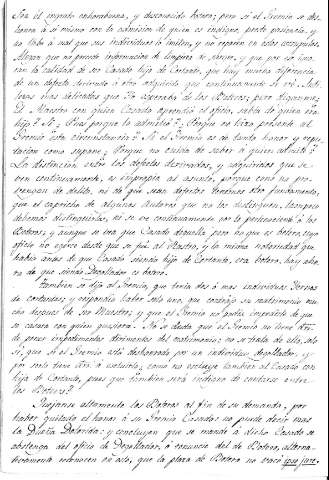 Sea el ingrato enhorabuena, y desconocido botero; pero si el Gremio se des
honra à sí mismo con la admision de quien es indigno, preste paciencia, y
su tabla à mal que sus individuos lo imiten, y no reparen en estos escrupulos.
Alegan que no precede informacion de limpieza de sangre, y que por lo tan
la calidad de ser Casado hijo de Cortante, que hay mucha diferencia
de un defecto derivado à otro adquirido que continuamente se vé.
mas delicados que la asperela de los Boteros; pero diganme:
El Maestro con quien Casado aprendió el oficio, sabía de quien era
hijo? Si; Pues porque lo admitió? Porque es tiró presente al
Gremio esta circunstancia? Si el Gremio es de tanto honor y repu
tacion como supone; Porque no cuida de saber à quien admite?
La distincion entre los defectos derivados, y adquiridos que se
ven continuamente, es impropia al asunto, porque como no pro-
vengan de delito, ni de quien sean defectos tenemos otro fundamento,
que el capricho de algunos Autores que no los distinguen, tampoco
debemos distinguirlos, ni se ve continuamente por lo perteneciente à los
Boteros; y aunque se vea que Casado desuella, pero no que es botero, cuyo
oficio no exerce desde que se fué al Rastro, y la misma notoriedad que
habia antes de que Casado siendo hijo de Cortante, era botero, hay aho-
ra de que siendo Degollador es botero.
Tambien se dijo al Gremio, que tenia dos ò mas individuos Yernos
de cortantes; y respondió haber solo uno, que contrajo su matrimonio mu
cho despues de ser Maestro; y que el Gremio no podia impedirle de que
se casara con quien quisiera. No se duda que el Gremio no tiene dro.
de poner impedimentos dirimentes del matrimonio; no se trata de ello, sólo
sí, que si el Gremio está deshonrado por un individuo degollador, y
por esto tiene dro. à excluirlo; como no excluye tambien al Casado con
hija de Cortante, pues que tambien será indigno de contarse entre
los Boteros?
Quejanse altamente los Boteros al fin de su demanda, por
haber quitado el honor à su Gremio Casado: no puede decir mas
la Dueña Dolorida; y concluyen que se mande à dicho Casado se
abstenga del oficio de Degollador, ò renuncie del de Botero, alterna-
tivamente reconocen en esto, que la plaza de Botero no crece ipso jure.